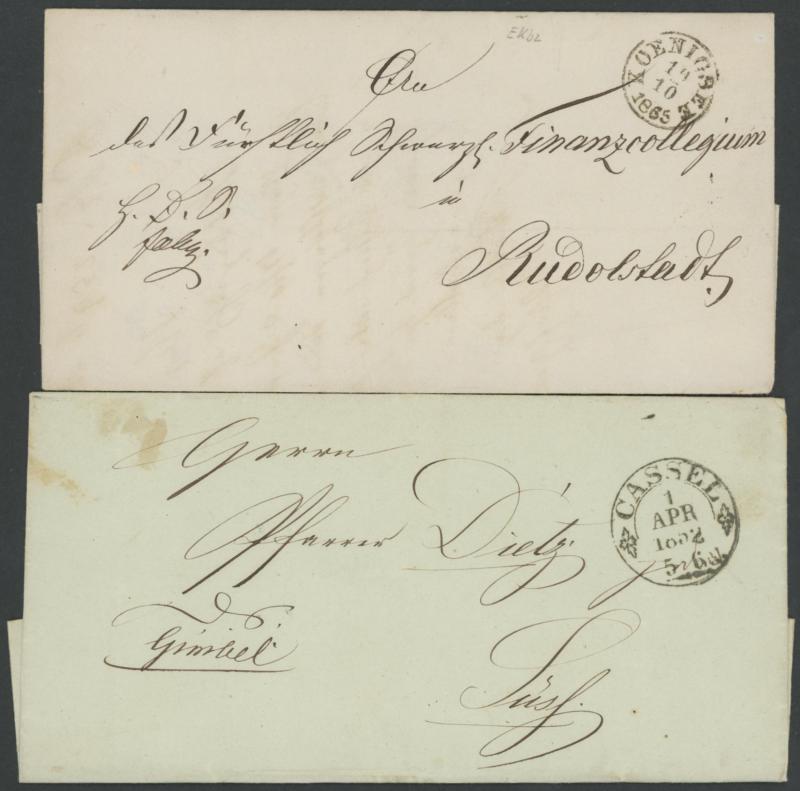 EKb2
KOENIGSEE
10
10
1865
An
das Fürstlich Schwarzb. Finanzcollegium
in
H. D. S.
Rudolstadt.
Herrn
Pfarrer Dietz
CASSEL
1
APR
1852
5-6
Gimbel